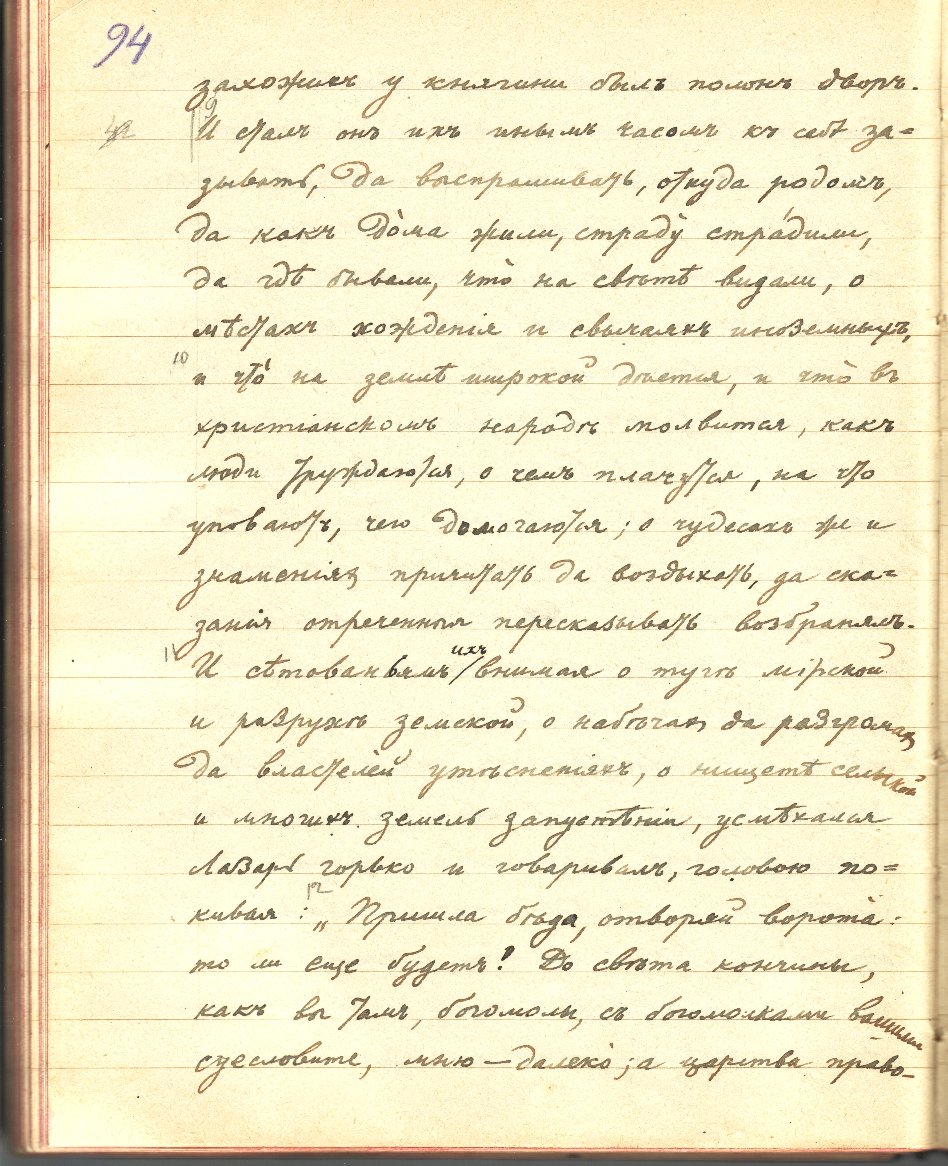 94
захожихъ у княгини былъ полонъ дворъ.
9
И сталъ онъ ихъ инымъ часомъ къ себѣ за=
зывать, да выспрашивать, откуда родомъ,
да какъ до́ма жили, страду̀ стра́дили,
да гдѣ бывали, что̀ на свѣтѣ видали, о
мѣстахъ хожденія и свычаяхъ иноземныхъ,
10
и что́ на землѣ широкой дѣется, и что̀ въ
христіанскомъ народѣ молвится, какъ
люди труждаются, о чемъ плачутся, на что
уповаютъ, чего домогаются; о чудесахъ же и
знаменіяхъ причитать да воздыхать, да ска=
занія отреченныя пересказывать возбранялъ.
11
И сѣтованьямъ ихъ внимая о тугѣ мірской
и разрухѣ земской, о набѣгахъ да разгромахъ
да властелей утѣсненіяхъ, о нищетѣ сельской
и многихъ земель запустѣніи, усмѣхался
Лазарь горько и говаривалъ, головою по=
12
кивая: „Пришла бѣда, отворяй ворота̀:
то ли еще будетъ! До свѣта кончины,
какъ вы тамъ, богомолы, съ богомолками вашими
суесловите, мню — далеко̀; а царства право-